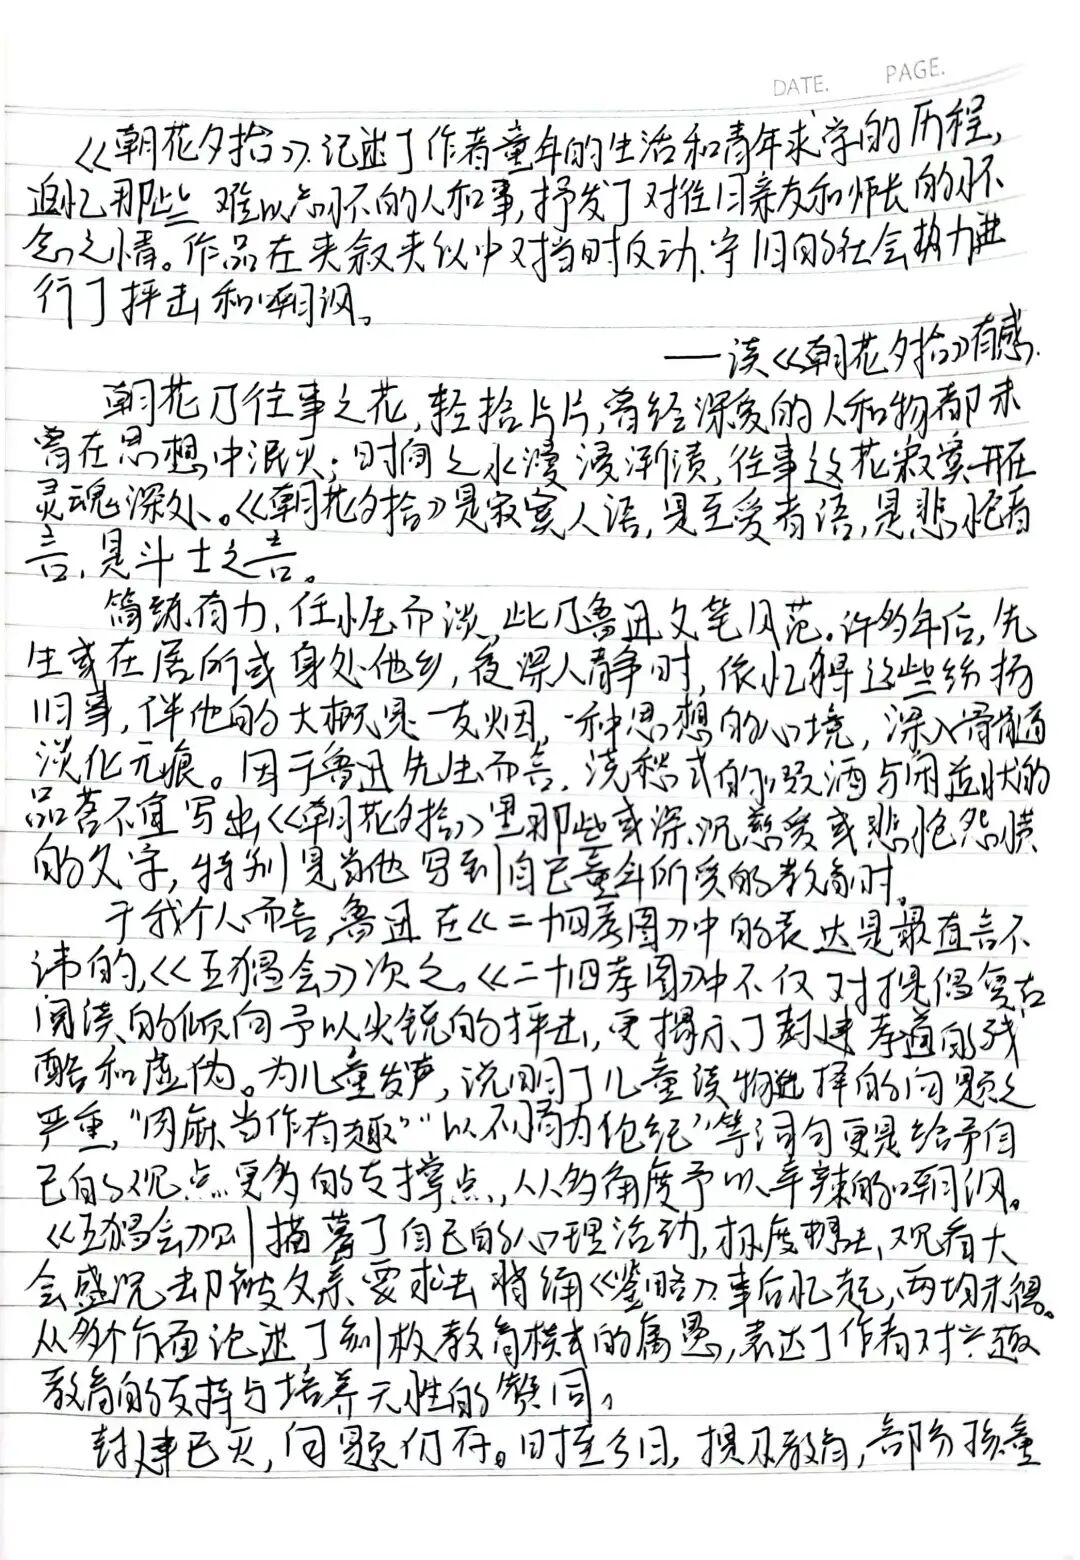 DATE. PAGE.
《朝花夕拾》记述了作者童年的生活和青年求学的历程,
追忆那些难以忘怀的人和事,抒发了对往日亲友和师长的怀
念之情。作品在夹叙夹议中对当时反动、守旧的社会势力进
行了抨击和嘲讽。
——读《朝花夕拾》有感.
朝花乃往事之花,轻拾片片,曾经深爱的人和物都未
曾在思想中泯灭;时间之水漫浸渐渍,往事这花寂寞开在
灵魂深处、。《朝花夕拾》是寂寞人语,是至爱者语,是悲怆者
言,是斗士之言。
简练有力,任性而谈,此乃鲁迅文笔风范。许多年后,先
生或在居所或身处他乡,夜深人静时,依忆得这些纷扬
旧事,伴他的大概是一支烟,一种思想的心境,深入骨髓
淡化无痕。因于鲁迅先生而言,浇愁式的烈酒与闲适状的
品茗不宜写出《朝花夕拾》里那些或深沉慈爱或悲怆怨愤
的文字,特别是当他写到自己童年所受的教育时。
于我个人而言,鲁迅在《二十四孝图》中的表达是最直言不
讳的,《五猖会》次之。《二十四孝图》中不仅对提倡复古
阅读的倾向予以尖锐的抨击,更揭示了封建孝道的残
酷和虚伪。为儿童发声,说明了儿童读物选择的问题之
严重,“肉麻当作有趣”“以不情为伦纪”等词句更是给予自
己的观点更多的支撑点,从多角度予以辛辣的嘲讽。
《五猖会》则描摹了自己的心理活动,极度想去观看大
会盛况却被父亲要求去背诵《鉴略》,事后忆起,两均未得。
从多个方面论述了刻板教育模式的腐愚,表达了作者对兴趣
教育的支持与培养天性的赞同。
封建已灭,问题仍存。时至今日,提及教育,部分孩童